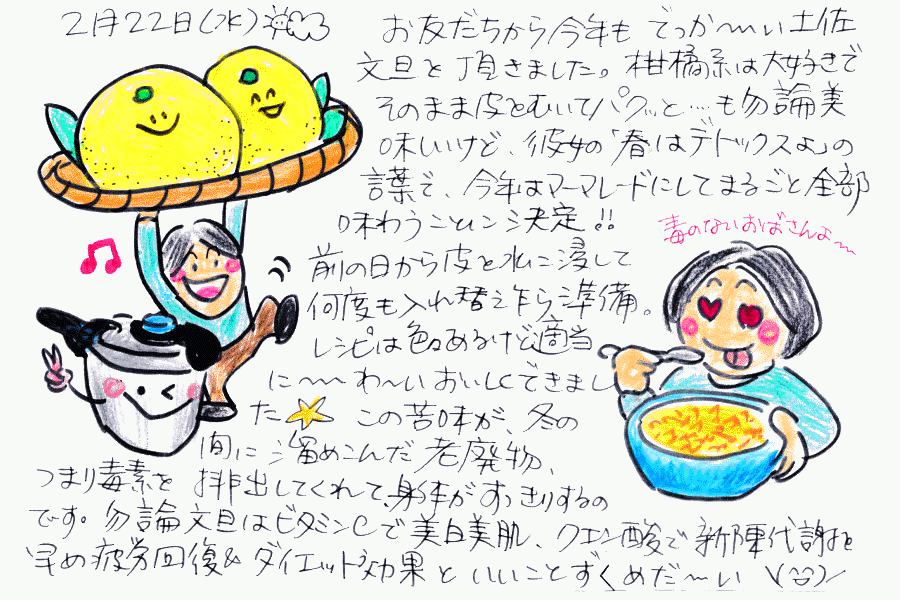 2月22日(水)
お友だちから今年も でっか〜〜い 土佐
文旦を頂きました。柑橘系は大好きで
そのまま皮をむいてパクッと…も勿論美
味しいけど、彼女の「春はデトックスよ」の
言葉で、今年はマーマレードにしてまるごと全部
味わうことに決定!!
毒のないおばさんよ〜
前の日から皮を水に浸して
何度も入れ替え乍ら準備。
レシピは色々あるけど適当
に〜〜わ〜いおいしくできまし
た☆ この苦味が、冬の
間に溜めこんだ老廃物、
つまり毒素を 排出してくれて、身体がすっきりするの
です。勿論文旦はビタミンCで美白美肌、クエン酸で新陳代謝を
早め疲労回復&ダイエット効果 と いいことずくめだ〜い \(^^)/